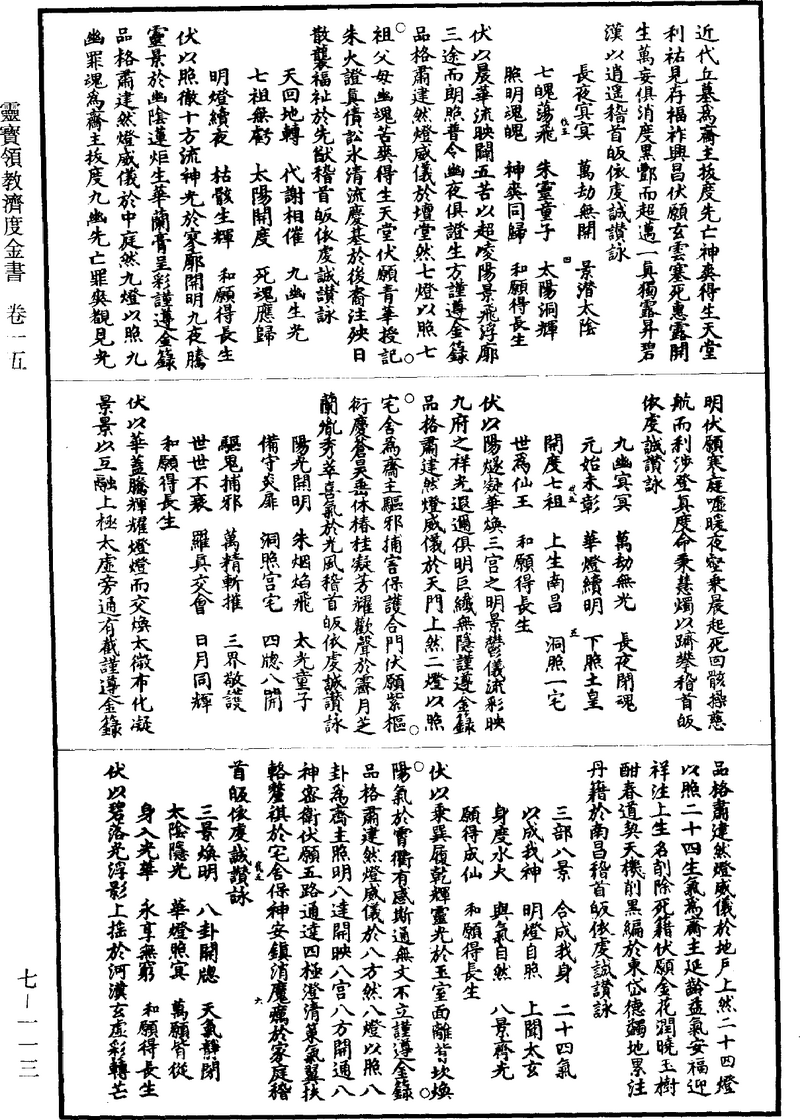 靈寶領教濟度金書 卷一五
七—一一三
近代丘墓為齋主拔度先亡神爽得生天堂
利祐見存福祚興昌伏願玄雲寒死惠露開
生萬妄俱消度黑酆而超邁一真獨露昇碧
漢以逍遥稽首皈依虔誠讃詠
長夜冥冥 萬劫無開 景潛太陰
七魄蕩飛 朱靈童子 太陽洞輝
照明魂魄 神爽同歸 和願得長生
伏以晨華流映闢五苦以超凌陽景飛浮廓
三途而朗照普令幽夜俱證生方謹遵金籙
品格肅建然燈威儀於壇堂然七燈以照七
祖父母幽魂苦爽得生天堂伏願青華授記
朱火證真債訟水清流慶基於後裔注殃日
散襲福祉於先猷稽首皈依虔誠讃詠
天回地轉 代謝相催 九幽生光
七祖無虧 太陽開度 死魂應歸
明燈續夜 枯骸生輝 和願得長生
伏以照徹十方流神光於寥廓開明九夜騰
靈景於幽陰蓮炬生華蘭膏呈彩謹遵金籙
品格肅建然燈威儀於中庭然九燈以照九
幽罪魂為齋主拔度九幽先亡罪爽覩見光
明伏願寒庭噓暖夜壑秉晨起死回骸操慈
航而利涉登真度命秉慧燭以躋攀稽首皈
依虔誠讃詠
九幽冥冥 萬劫無光 長夜閉魂
元始未彰 華燈續明 下照土皇
開度七祖 上生南昌 洞照一宅
世為仙王 和願得長生
伏以陽燧凝華煥三宫之明景鬱儀流彩映
九府之祥光遐邇俱明巨纖無隱謹遵金籙
品格肅建然燈威儀於天門上然二燈以照
宅舍為齋主驅邪捕害保護合門伏願紫樞
衍慶蒼昊垂休椿桂凝芳耀歡聲於霽月芝
蘭毓秀萃喜氣於光風稽首皈依虔誠讃詠
陽光開明 朱烟焰飛 太光童子
備守爽扉 洞照宫宅 四牕八開
驅鬼捕邪 萬精斬摧 三界敬護
世世不衰 羅真交會 日月同輝
和願得長生
伏以華蓋騰輝耀燈燈而交煥太微布化凝
景景以互融上極太虛旁通有截謹遵金籙
品格肅建然燈威儀於地戶上然二十四燈
以照二十四生氣為齋主延齡益氣安福迎
祥注上生名削除死籍伏願金花潤曉玉樹
酣春道契天機削黑編於東岱德蠲地累注
丹籍於南昌稽首皈依虔誠讃詠
三部八景 合成我身 二十四氣
以成我神 明燈自照 上開太玄
身度水火 與氣自然 八景齊光
願得成仙 和願得長生
伏以乘巽履乾輝靈光於玉室面離背坎煥
陽氣於霄衢有感斯通無文不立謹遵金籙
品格肅建然燈威儀於八方然八燈以照八
卦為齋主照明八達開映八宫八方開通八
神密衛伏願五路通達四極澄清菓氣翼扶
輅釐祺於宅舍保神安鎮消魔癘於家庭稽
首皈依虔誠讃詠
三景煥明 八卦開牕 天氣靜閉
太陰隱光 華燈照冥 萬願皆從
身入光華 永享無窮 和願得長生
伏以碧落光浮影上摇於河漢玄虛彩轉芒